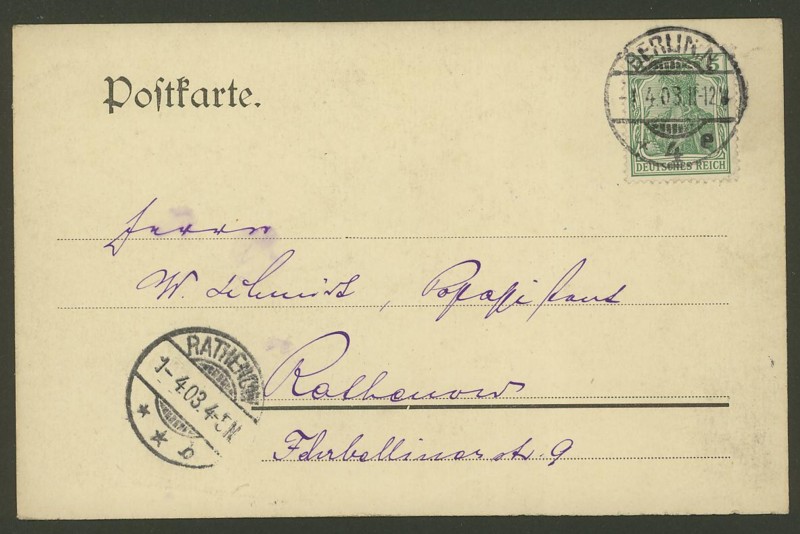 Postkarte.
BERLIN. N.
-1 4.03.11-12V
* 4 e
5
DEUTSCHES REICH
Herrn
W. Schmidt, Postassistent
Rathenow
Fehrbellinerstr. 9
RATHENOW
1-4.03.4-5N
* * b